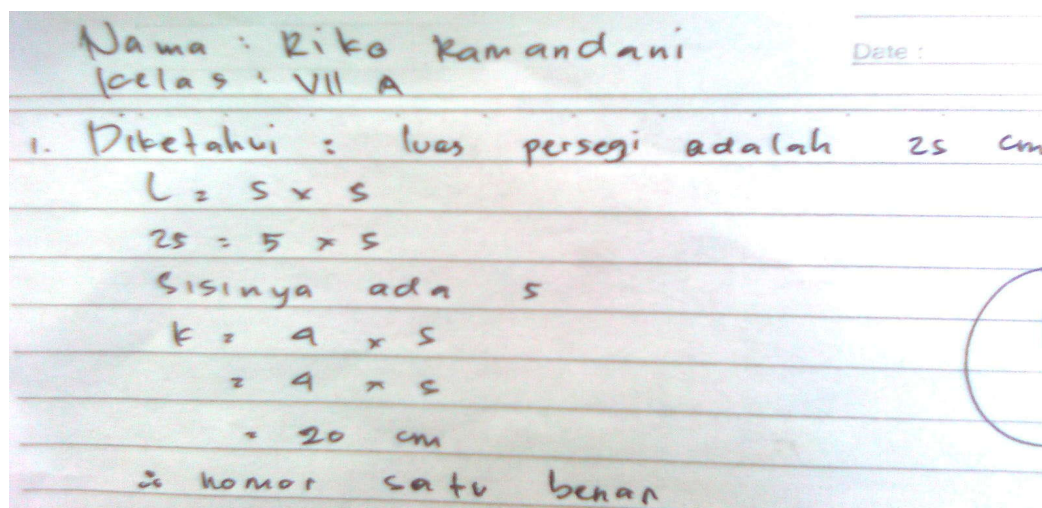 Nama : Riko Ramandani
Date :
Kelas : VII A
1. Diketahui : luas persegi adalah 25 cm
L = s x s
25 = 5 x 5
Sisinya ada 5
K = 4 x s
= 4 x 5
= 20 cm
∴ nomor satu benar